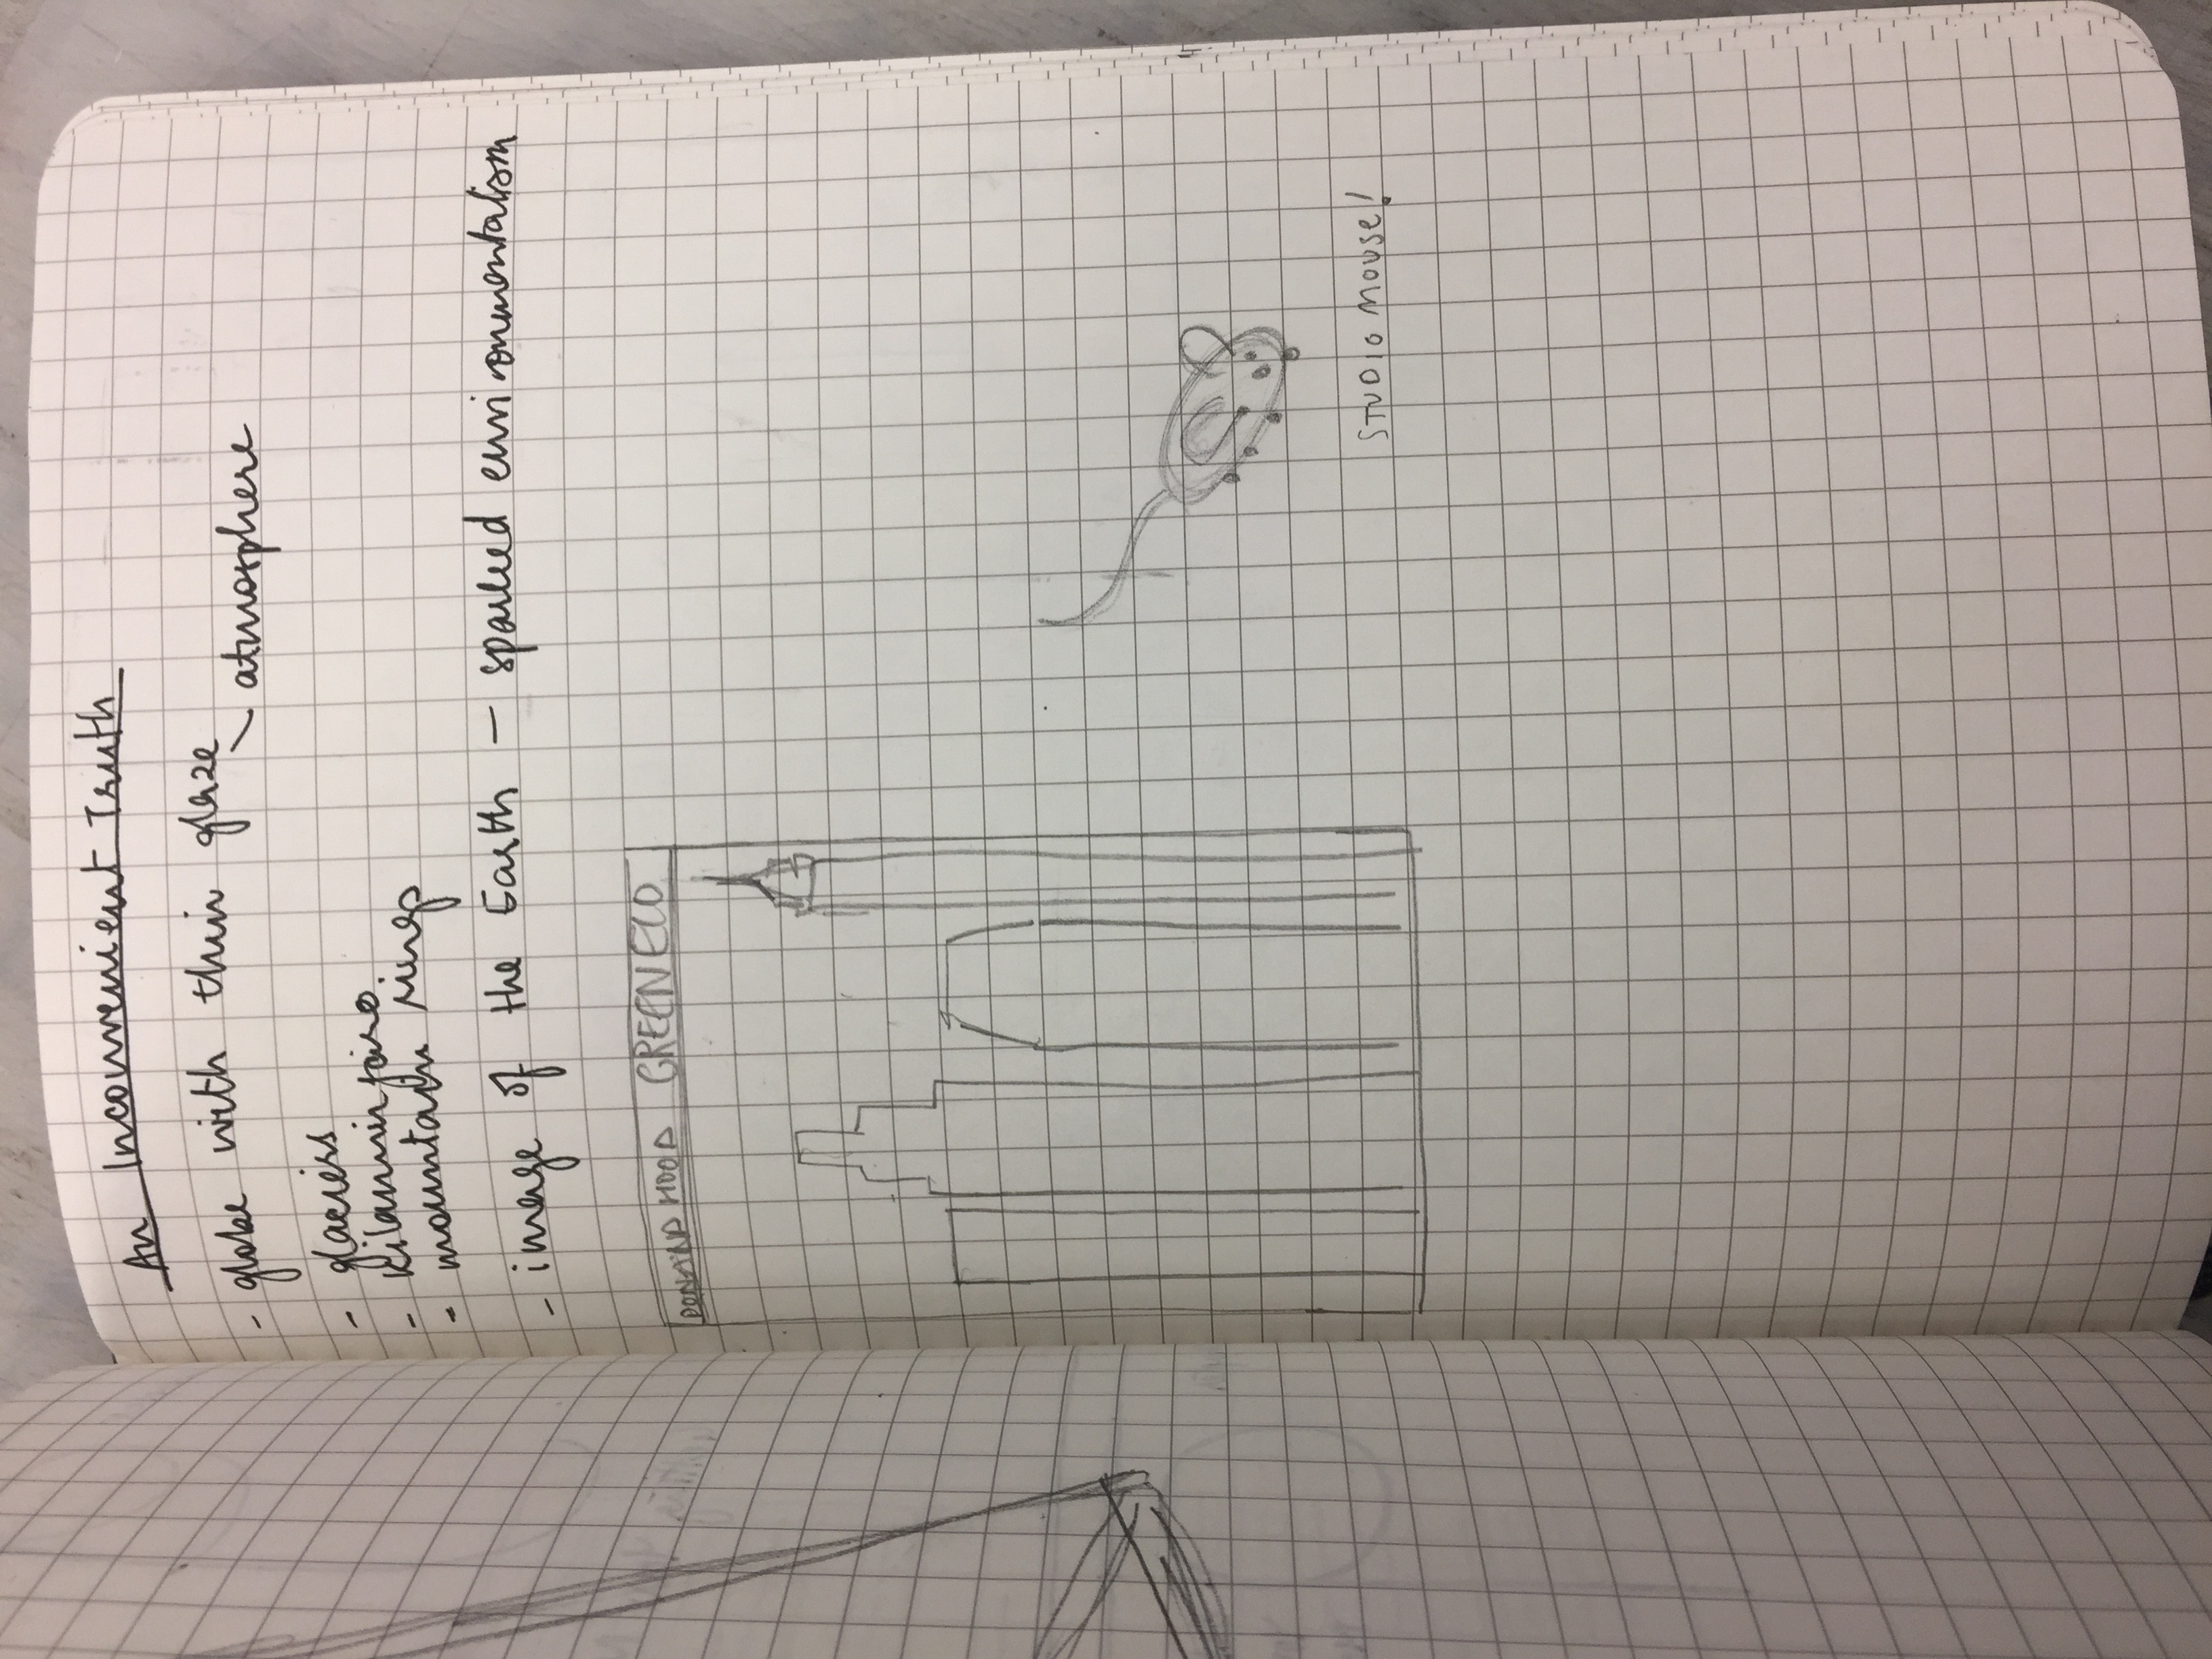 An Inconvenient Truth
- globe with thin glaze
atmosphere
- glaciers
- Kilamirjaro.
- mountain rings
- image of the Earth — sparked environmentalism
HOOD GREEN
STUDIO MOUSE!